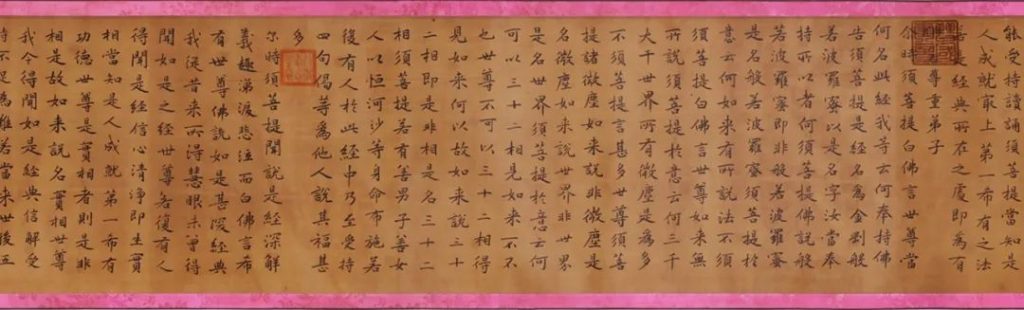 能受持讀誦須菩提當知是
人成就最上第一希有之法
經典所在之處即為有
尊重弟子
尒時須菩提白佛言世尊當
何名此經我等云何奉持佛
告須菩提是經名為金剛般
若波羅蜜以是名字汝當奉
持所以者何須菩提佛說般
若波羅蜜即非般若波羅蜜
是名般若波羅蜜須菩提於
意云何如來有所說法不須
菩提白佛言世尊如來無
所說須菩提於意云何三千
大千世界所有微塵是為多
不須菩提言甚多世尊須菩
提諸微塵如來說非微塵是
名微塵如來說世界非世界
是名世界須菩提於意云何
可以三十二相見如來不不
也世尊不可以三十二相得
見如來何以故如來說三十
二相即是非相是名三十二
相須菩提若有善男子善女
人以恒河沙等身命布施若
復有人於此經中乃至受持
四句偈等為他人說其福甚
多
尒時須菩提聞說是經深解
義趣涕淚悲泣而白佛言希
有世尊佛說如是甚深經典
我從昔來所得慧眼未曾得
聞如是之經世尊若復有人
得聞是經信心清淨即生實
相當知是人成就第一希有
功德世尊是實相者則是非
相是故如來說名實相世尊
我今得聞如是經典信解受
持不足為難若當來世後五